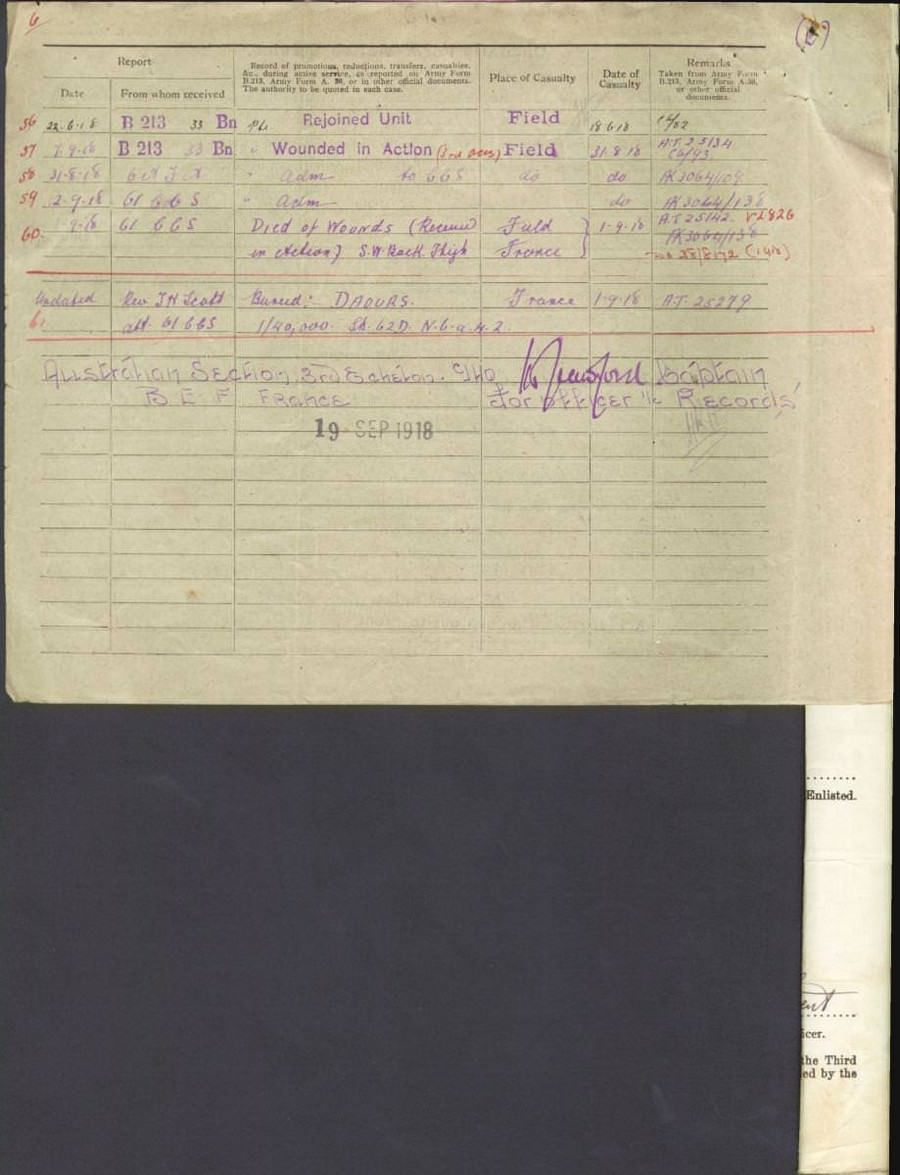 6
Report
Record of promotions, reductions, transfers, casualties, &c., during active service, as reported on Army Form B.213, Army Form A. 36, or in other official documents. The authority to be quoted in each case.
Place of Casualty
Date of Casualty
Remarks
Taken from Army Form B.213, Army Form A.36, or other official documents.
Date
From whom received
56 22.6.18 B 213 33 Bn Rejoined Unit Field 18 6 18
57 7.9.18 B 213 33 Bn " Wounded in Action Field 31.8.18 A.T. 25134
58 31-8-18 " adm to CCS do do PK 3064/109
59 2-9-18 61 CCS " adm do PK 3064/138
60. 9-18 61 CCS Died of Wounds (Received Field 1-9-18 A.T. 25142. V2826
in Action) S.W. Back Thigh France PK 3064/138
Undated Rev J H Scott Buried: DAOURS. France 1-9-18 A.T. 25279
61 att. 61 CCS 1/40,000. Sh. 62D. N.6.a.4.2.
Australian Section, 3rd Echelon. GHQ Captain
B E F FRANCE For officer i/c Records
19 SEP 1918
Enlisted.
icer.
the Third
ed by the